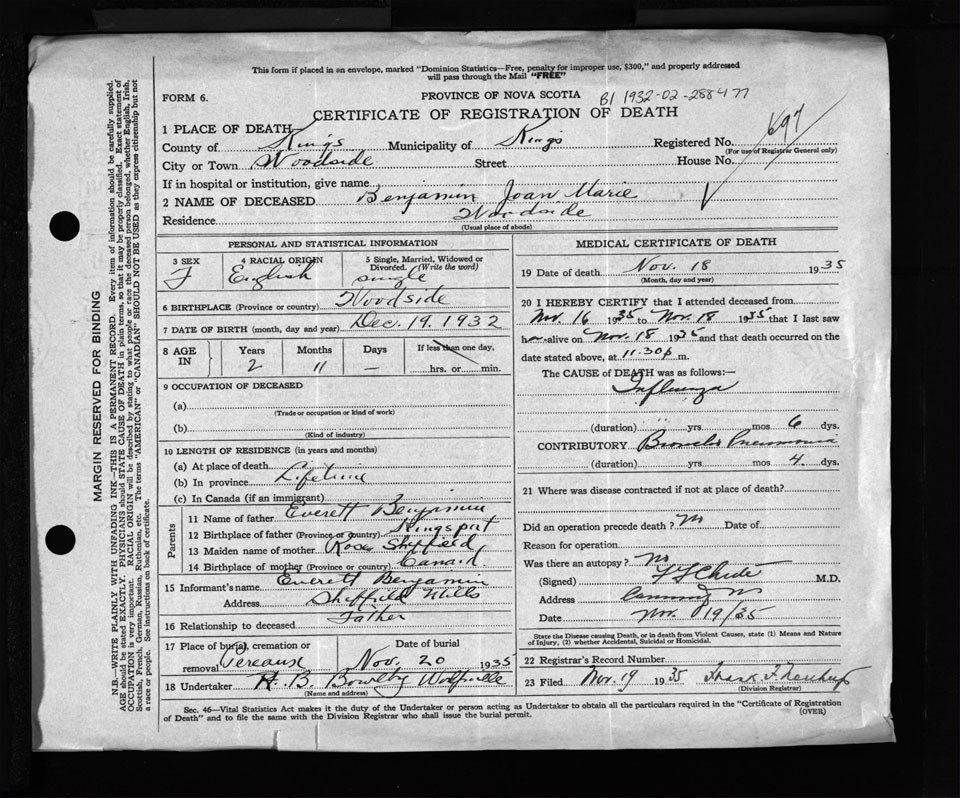 This form if placed in an envelope, marked "Dominion Statistics—Free, penalty for improper use, $300," and properly addressed
will pass through the Mail "FREE"
FORM 6.
PROVINCE OF NOVA SCOTIA B1 1932-02-288477
CERTIFICATE OF REGISTRATION OF DEATH
1 PLACE OF DEATH
County of Kings Municipality of Kings Registered No. 697
(For use of Registrar General only)
City or Town Woodside Street House No.
If in hospital or institution, give name
2 NAME OF DECEASED Benjamin Joan Marie
Residence Woodside
(Usual place of abode)
PERSONAL AND STATISTICAL INFORMATION
3 SEX 4 RACIAL ORIGIN 5 Single, Married, Widowed or
Divorced. (Write the word)
F English single
6 BIRTHPLACE (Province or country) Woodside
7 DATE OF BIRTH (month, day and year) Dec. 19. 1932
8 AGE IN Years Months Days If less than one day,
2 11 — hrs. or min.
9 OCCUPATION OF DECEASED
(a)
(Trade or occupation or kind of work)
(b)
(Kind of industry)
10 LENGTH OF RESIDENCE (in years and months)
(a) At place of death
(b) In province Lifetime
(c) In Canada (if an immigrant)
Parents
11 Name of father Everett Benjamin
12 Birthplace of father (Province or country) Kingsport
13 Maiden name of mother Rose Sheffield
14 Birthplace of mother (Province or country) Canard
15 Informant's name Everett Benjamin
Address Sheffield Mills
16 Relationship to deceased Father
17 Place of burial, cremation or Date of burial
removal Pereaux Nov. 20 1935
18 Undertaker H. B. Bowlby Wolfville
(Name and address)
MEDICAL CERTIFICATE OF DEATH
19 Date of death Nov. 18 1935
(Month, day and year)
20 I HEREBY CERTIFY that I attended deceased from
Nov. 16 1935 to Nov. 18 1935 that I last saw
her alive on Nov. 18 1935 and that death occurred on the
date stated above, at 11.30 p m.
The CAUSE of DEATH was as follows:
Influenza
(duration) yrs mos 6 dys.
CONTRIBUTORY Broncho Pneumonia
(duration) yrs mos 4 dys.
21 Where was disease contracted if not at place of death?
Did an operation precede death? No Date of
Reason for operation
Was there an autopsy? No
(Signed) M.D.
Address
Date Nov. 19/35
State the Disease causing Death, or in death from Violent Causes, state (1) Means and Nature
of Injury, (2) whether Accidental, Suicidal or Homicidal.
22 Registrar's Record Number
23 Filed Nov. 19 1935
(Division Registrar)
Sec. 46—Vital Statistics Act makes it the duty of the Undertaker or person acting as Undertaker to obtain all the particulars required in the "Certificate of Registration
of Death" and to file the same with the Division Registrar who shall issue the burial permit.
(OVER)
MARGIN RESERVED FOR BINDING
N.B.—WRITE PLAINLY WITH UNFADING INK—THIS IS A PERMANENT RECORD. Every item of information should be carefully supplied.
AGE should be stated EXACTLY. PHYSICIANS should STATE CAUSE OF DEATH in plain terms, so that it may be properly classified. Exact statement of
OCCUPATION is very important. RACIAL ORIGIN will be described by stating to what people or race the deceased person belonged, whether English, Irish,
Scottish, French, German, Russian, Ruthenian, etc. The terms "AMERICAN" or "CANADIAN" SHOULD NOT BE USED as they express citizenship but not
a race or people. See instructions on back of certificate.